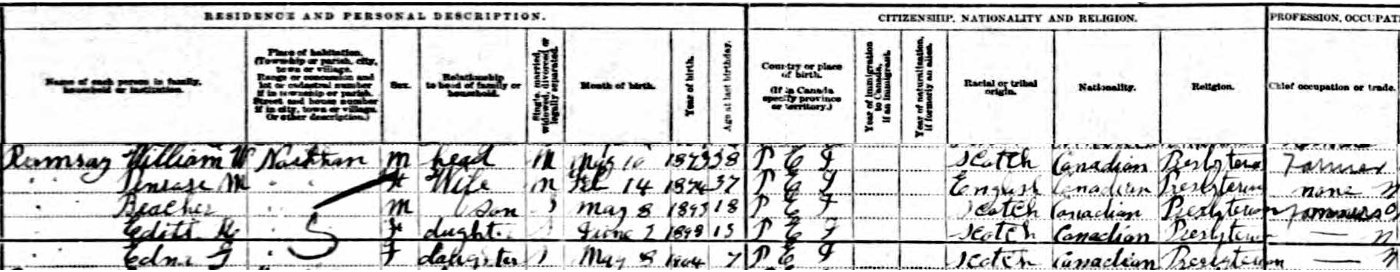 RESIDENCE AND PERSONAL DESCRIPTION. CITIZENSHIP, NATIONALITY AND RELIGION. PROFESSION, OCCUPAT
Name of each person in family, household or institution.
Place of habitation. (Township or parish, city, town or village. Range or concession and lot or cadastral number if in township or parish. Street and house number if in city, town or village. Or other description.)
Sex.
Relationship to head of family or household.
Single, married, widowed, divorced or legally separated.
Month of birth.
Year of birth.
Age at last birthday.
Country or place of birth. (If in Canada specify province or territory.)
Year of immigration to Canada, if an immigrant.
Year of naturalization, if formerly an alien.
Racial or tribal origin.
Nationality.
Religion.
Chief occupation or trade.
Ramsay William W M head M 10 1873 38 P E I Scotch Canadian Farmer
" M F Wife M Feb 14 1874 37 P E I English Canadian none
" M Son S May 8 1893 18 P E I Scotch Canadian
" Edith F S June 1898 13 P E I Scotch Canadian —
" Edna F daughter S May 8 1904 7 P E I Scotch Canadian —